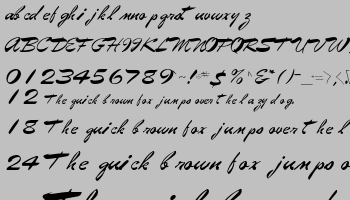 abcdefghijklmnopqrstuvwxyz
ABCDEFGHIJKLMNOPQRSTUVW
0123456789
12 The quick brown fox jumps over the lazy dog.
18 The quick brown fox jumps over the l
24 The quick brown fox jumps o